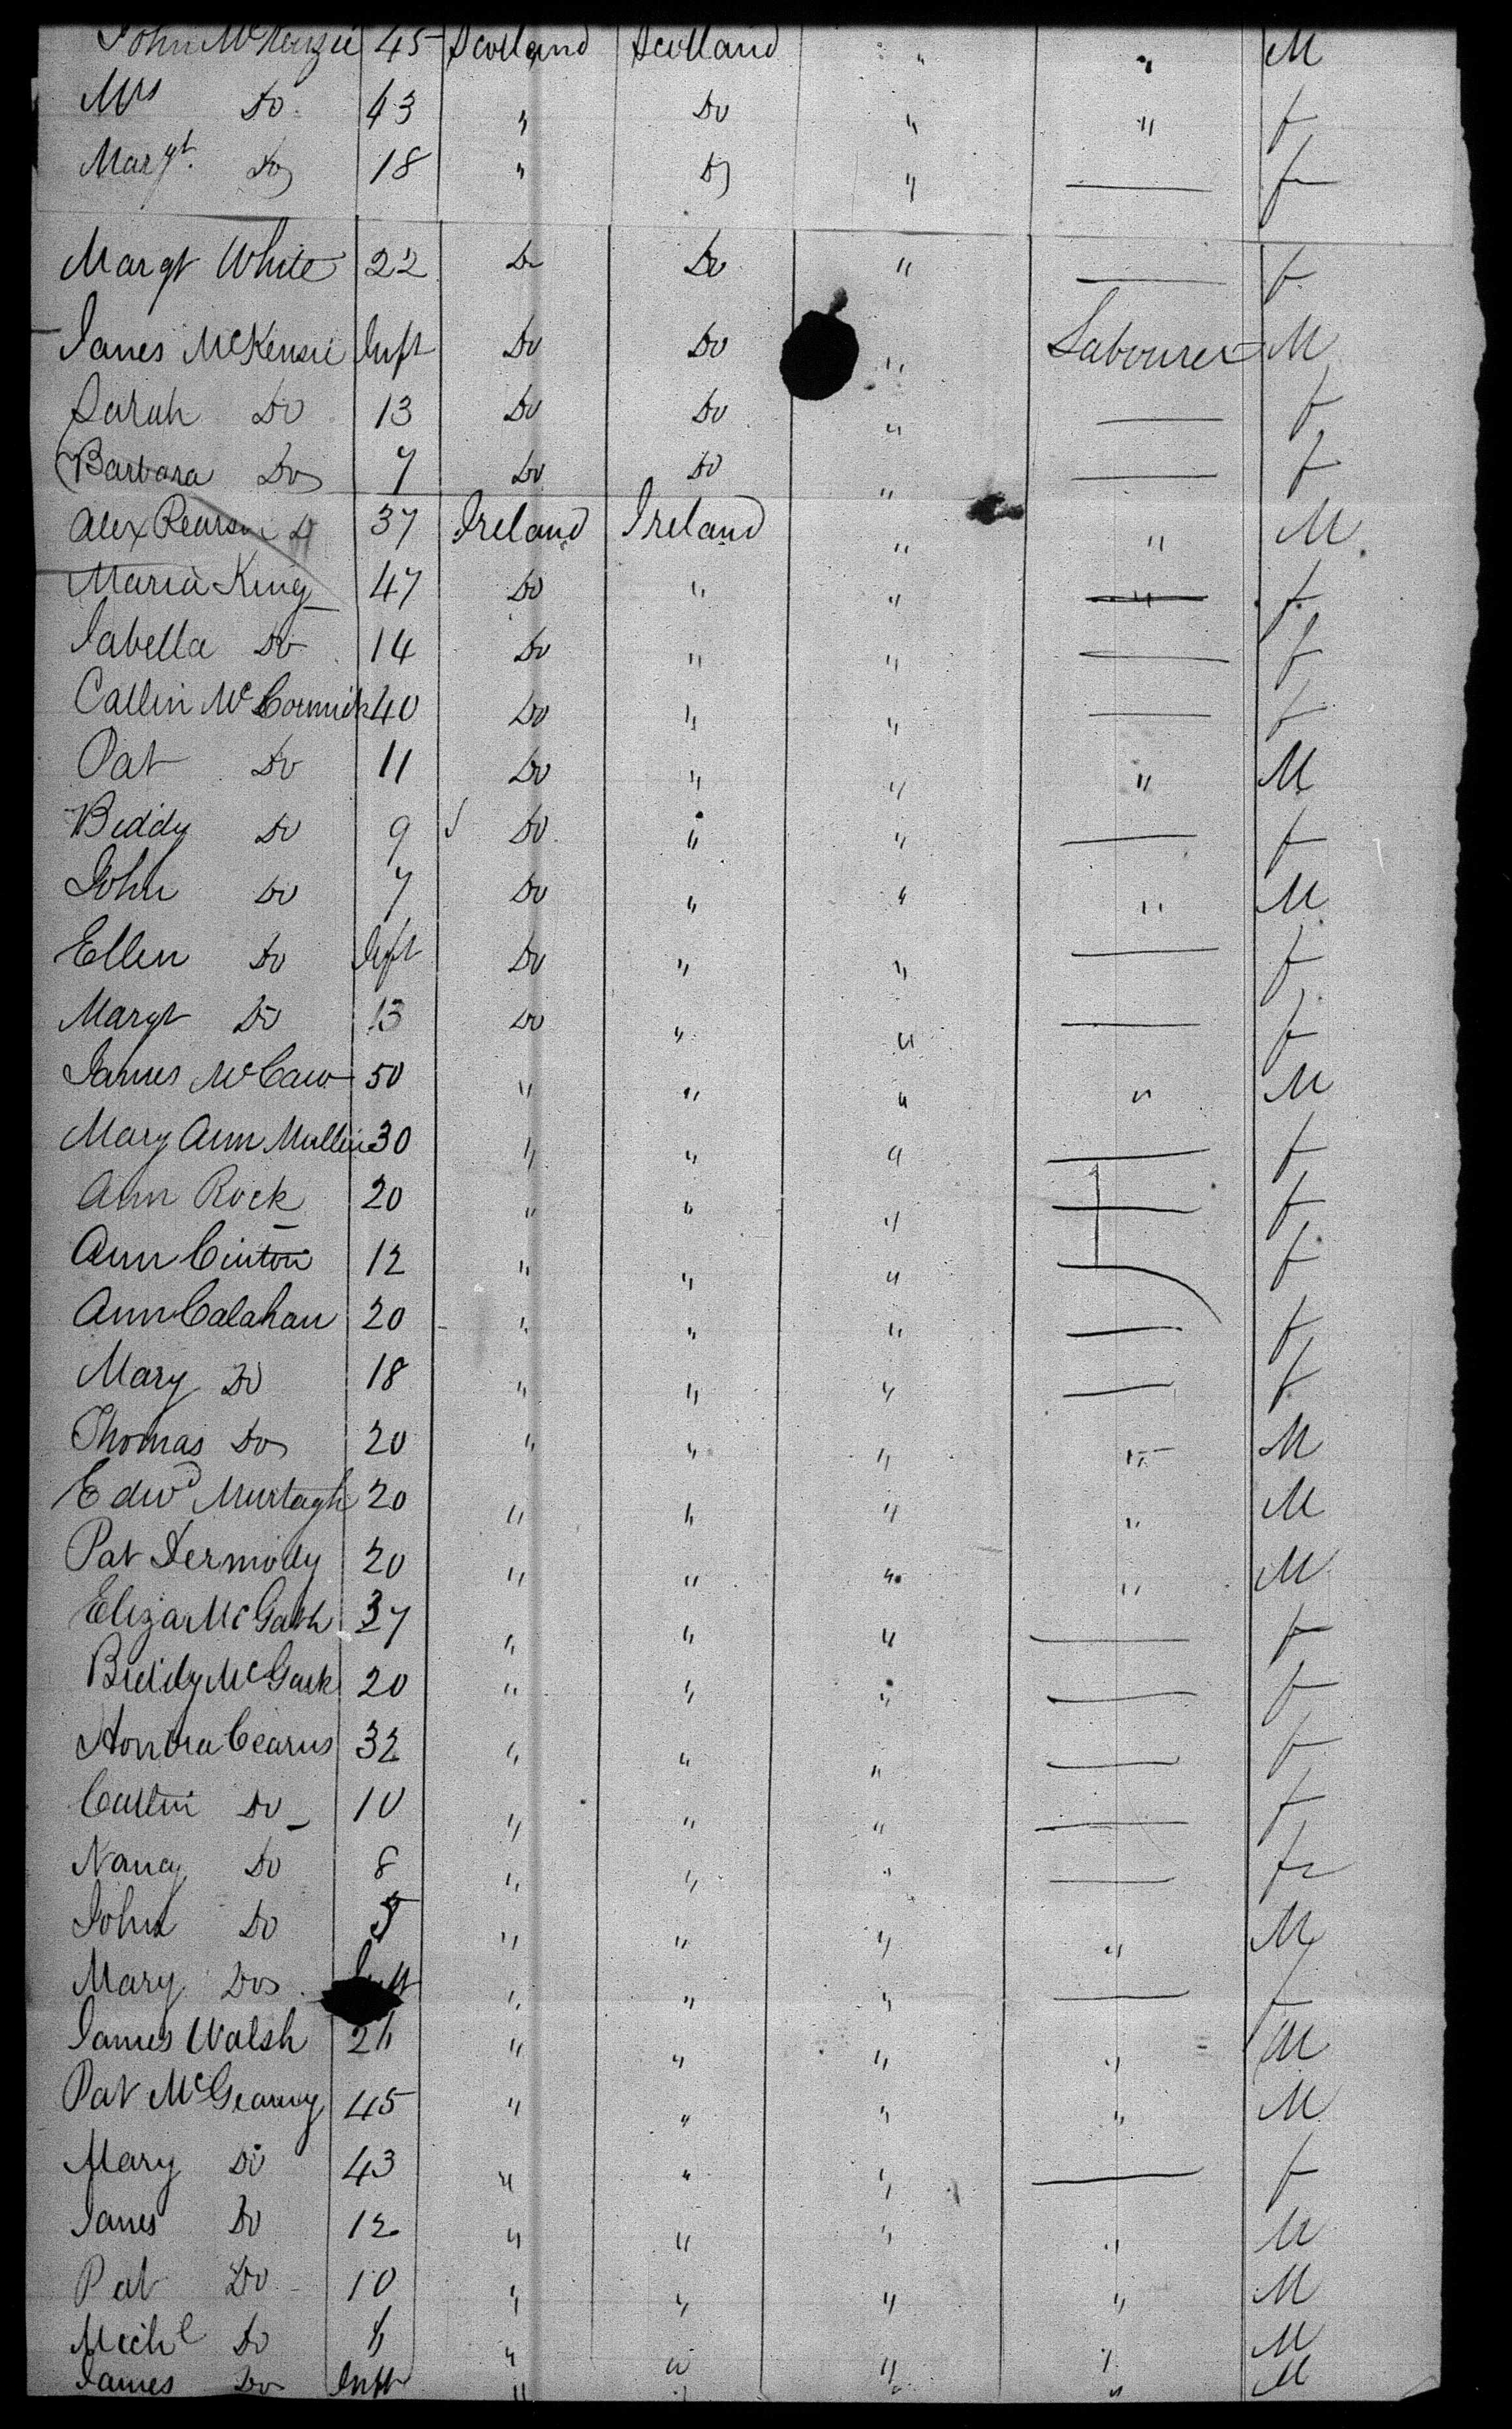 John McKenzie 45 Scotland Scotland " " M
Mrs Do 43 " Do " " f
Margt. Do 18 " Do " — f
Margt White 22 Do Do " — f
James McKensie Inft Do Do " Labourer M
Sarah Do 13 Do Do " — f
Barbara Do 7 Do Do " — f
Alex Pearson 37 Ireland Ireland " " M
Maria King 47 Do " " " f
Isabella Do 14 Do " " — f
Catlin McCormick 40 Do " " — f
Pat Do 11 Do " " " M
Biddy Do 9 Do " " — f
John Do 7 Do " " " M
Ellen Do Inft Do " " — f
Margt Do 13 Do " " — f
James McCaw 50 " " " " M
Mary Ann Mullin 30 " " " — f
Ann Rock 20 " " " — f
Ann Cinton 12 " " " — f
Ann Calahan 20 " " " — f
Mary Do 18 " " " — f
Thomas Do 20 " " " " M
Edwd Murtagh 20 " " " " M
Pat Dermody 20 " " " " M
Eliza McGath 37 " " " — f
Biddy McGark 20 " " " — f
Honora Cearns 32 " " " — f
Catlin Do 10 " " " — f
Nancy Do 8 " " " — f
John Do 5 " " " " M
Mary Do Inft " " " — f
James Walsh 24 " " " " M
Pat McGeamy 45 " " " " M
Mary Do 43 " " " — f
James Do 12 " " " " M
Pat Do 10 " " " " M
Michl Do " " " " M
James Do Inft " " " " M